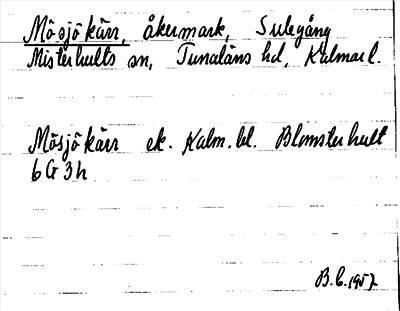 Mösjökärr, åkermark, Sulegång
Misterhults sn, Tunaläns hd, Kalmar l.
Mösjökärr ek. Kalm. bl. Blomsterhult
6 G 3 h
B. C. 1957